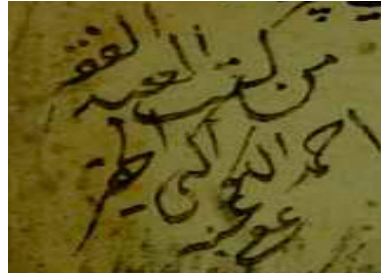 من كتب العبد الفقير
احمد الكواكبي
عفي عنه